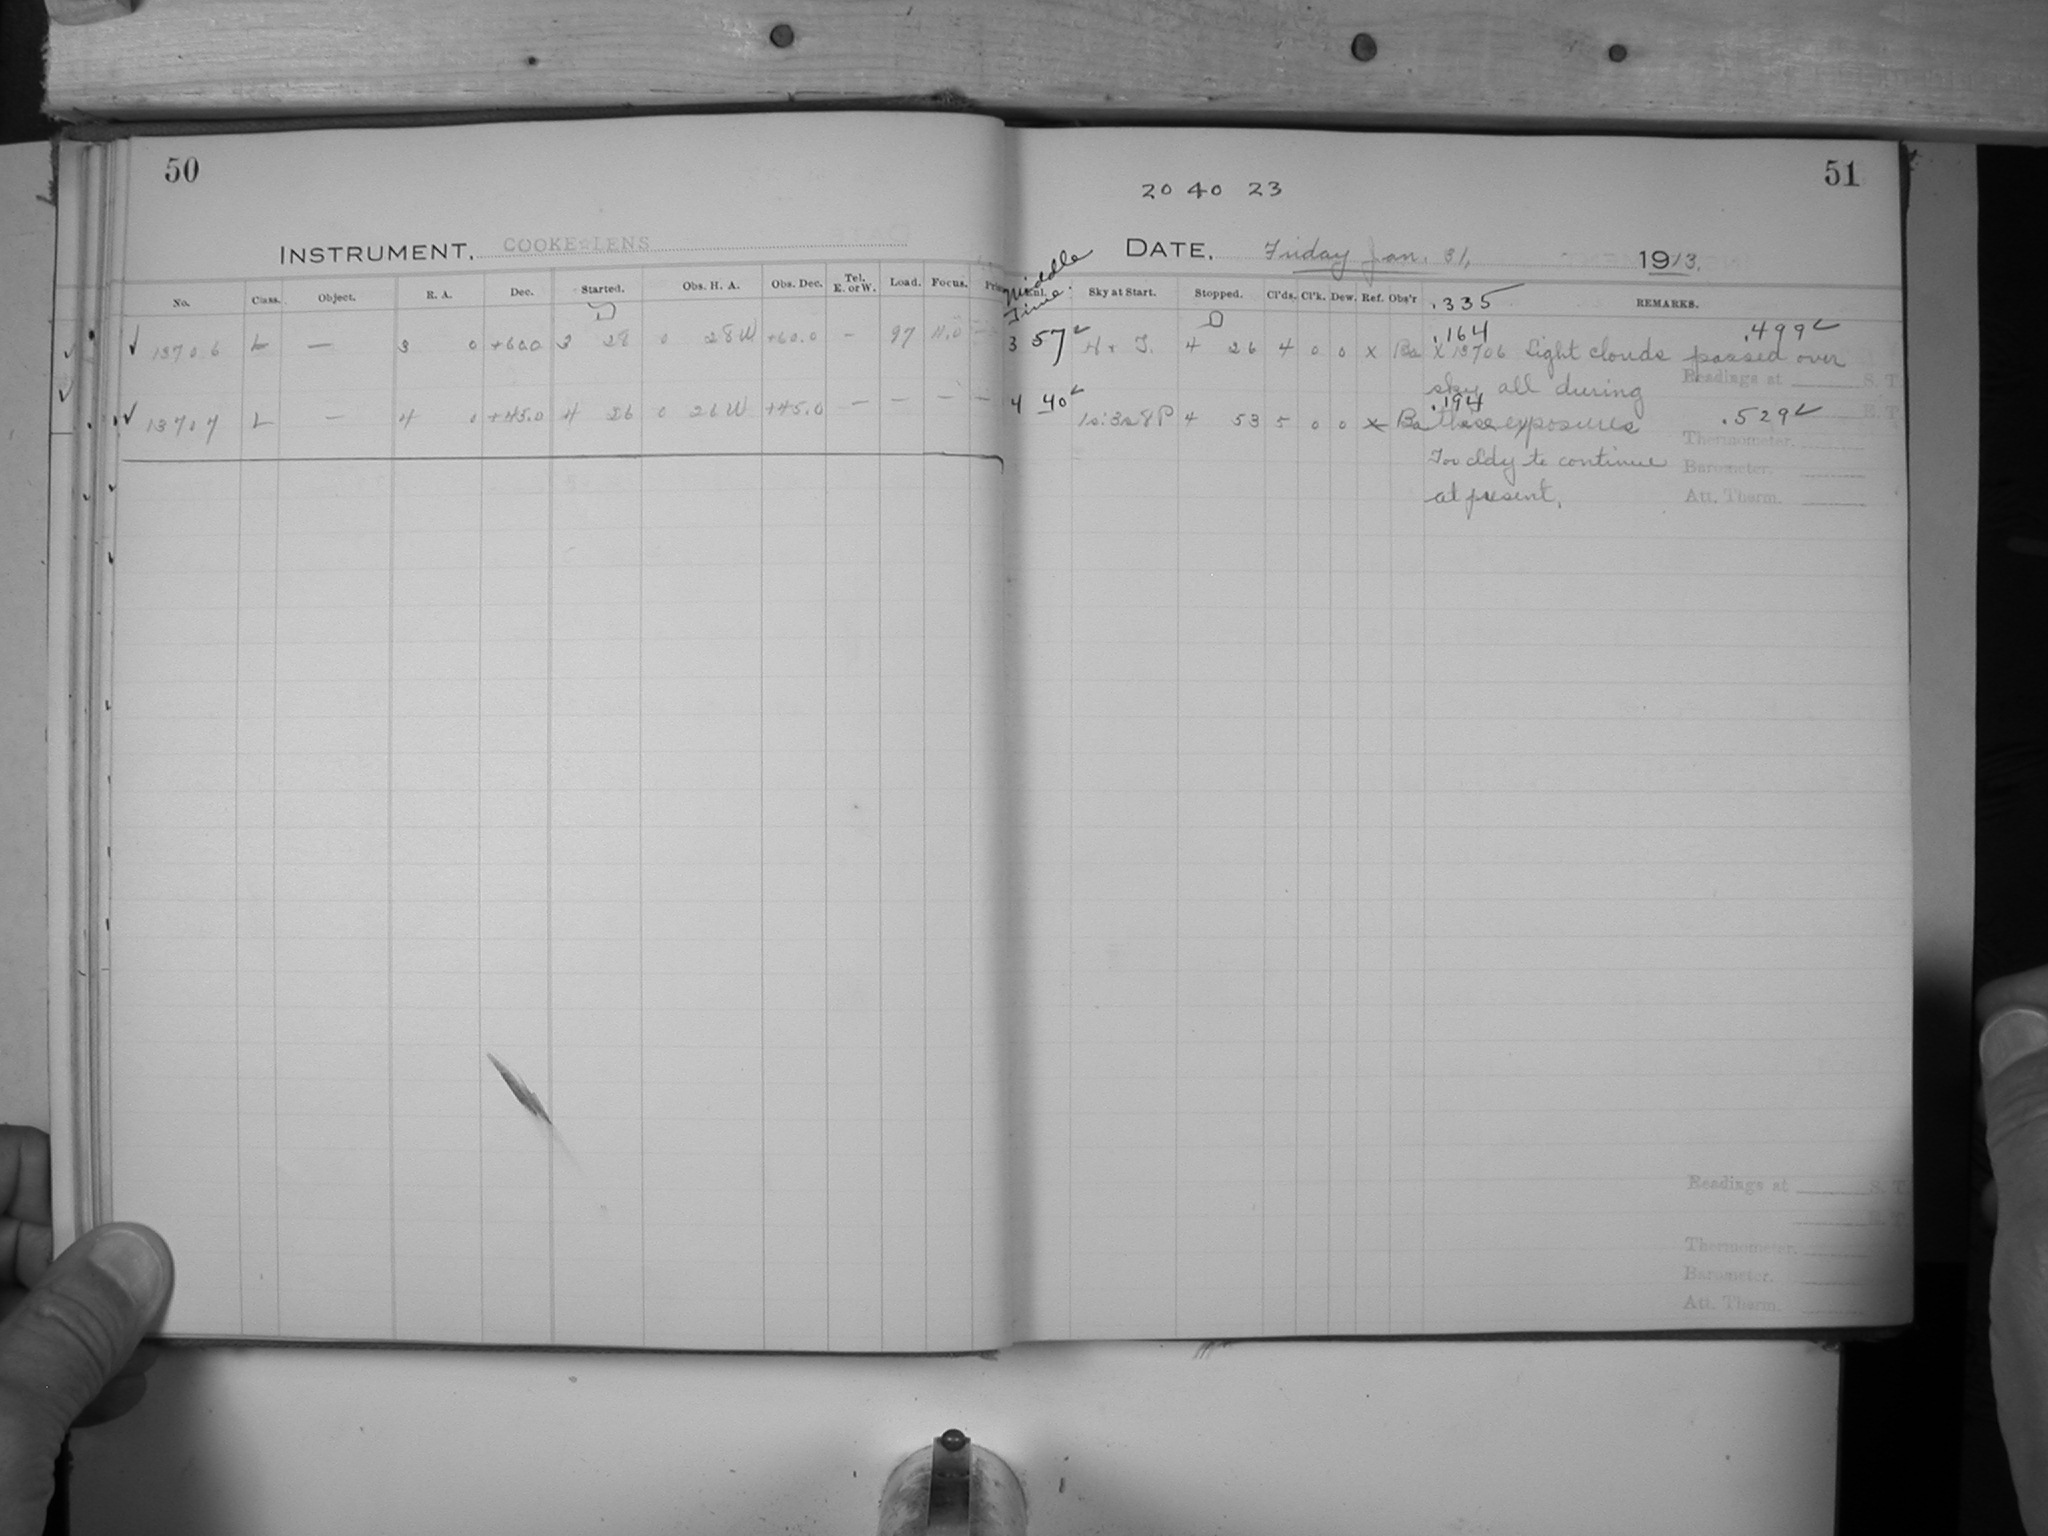 50
51
20 40 23
INSTRUMENT. COOKE LENS
DATE. Friday Jan. 31, 1913.
No. Class. Object. R. A. Dec. Started. Obs. H. A. Obs. Dec. Tel. E. or W. Load. Focus.
Middle Time. Sky at Start. Stopped. Cl'ds. Cl'k. Dew. Ref. Obs'r .335 REMARKS.
✓ 13706 L — 3 0 +60.0 3 28 0 28 W +60.0 – 97 11.0
3 57 4 26 4 0 0 x Ba .164 .499
X 13706 Light clouds passed over
Readings at S. T.
sky all during
✓ 13707 L — 4 0 +45.0 4 26 0 26 W +45.0 — — — —
4 40 4 53 5 0 0 x Ba .194 .529
these exposures
Thermometer.
Too cldy to continue
Barometer.
at present.
Att. Therm.
Readings at S. T.
Thermometer.
Barometer.
Att. Therm.